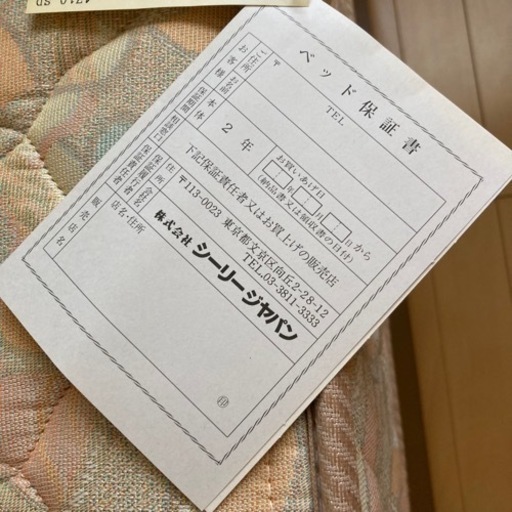 ベッド保証書
お客様
ご住所
〒
TEL
お名前
保証期間
本体
2年
お買いあげ日
年 月 日から
(納品書又は領収書の日付)
相談窓口
下記保証責任者又はお買上げの販売店
保証責任者
保証履行者
住所
会社名
〒113-0023 東京都文京区向丘2-28-12
TEL.03-3811-3333
株式会社 シーリージャパン
販売店名
店名・住所
印